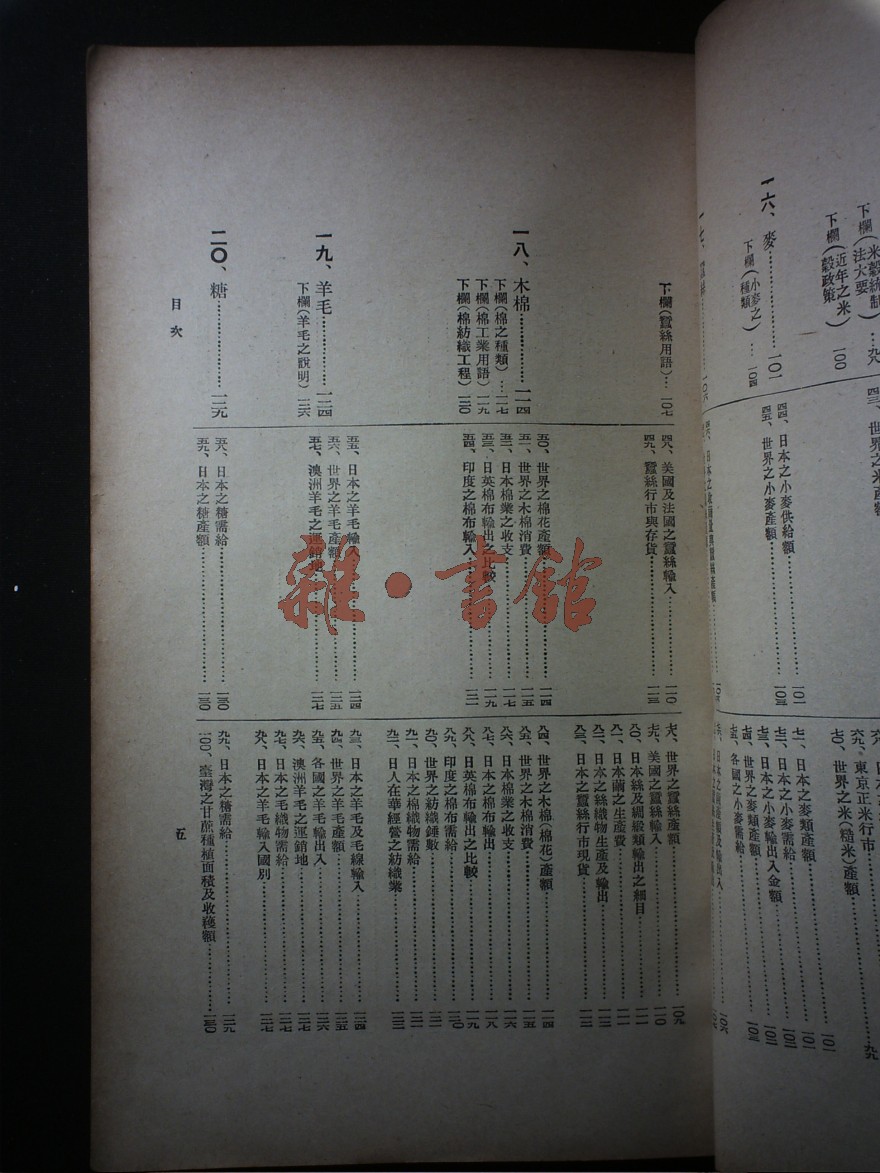 下欄(米穀統制法大要)…九九
下欄(近年之米穀政策)一〇〇
一六、麥…………一〇一
下欄(小麥之種類)…一〇四
四三、世界之米產額
四四、日本之小麥供給額…………一〇一
四五、世界之小麥產額…………一〇三
六九、東京正米行市…………九九
七〇、世界之米(糙米)產額
七一、日本之麥類產額…………一〇一
七二、日本之小麥需給…………一〇二
七三、日本之小麥輸出入金額…………一〇二
七四、世界之麥類產額…………一〇三
七五、各國之小麥需給
下欄(蠶絲用語)…一〇七
一八、木棉…………一一四
下欄(棉之種類)…一一七
下欄(棉工業用語)一一九
下欄(棉紡織工程)一二〇
一九、羊毛…………一二四
下欄(羊毛之說明)一二六
二〇、糖…………一二九
四八、美國及法國之蠶絲輸入…………一一〇
四九、蠶絲行市與存貨…………一一三
五〇、世界之棉花產額…………一一四
五一、世界之木棉消費…………一一五
五二、日本棉業之收支…………一一七
五三、日英棉布輸出之比較…………一一九
五四、印度之棉布輸入…………一二一
五五、日本之羊毛輸入…………一二四
五六、世界之羊毛產額…………一二五
五七、澳洲羊毛之運銷地…………一二七
五八、日本之糖需給…………一三〇
五九、日本之糖產額…………一三〇
七八、世界之蠶絲產額…………一〇九
七九、美國之蠶絲輸入…………一一〇
八〇、日本絲及綢緞類輸出之細目…………一一一
八一、日本繭之生產費…………一一一
八二、日本之絲織物生產及輸出…………一一二
八三、日本之蠶絲行市現貨…………一一三
八四、世界之木棉(棉花)產額…………一一四
八五、世界之木棉消費…………一一五
八六、日本棉業之收支…………一一六
八七、日本之棉布輸出…………一一八
八八、日英棉布輸出之比較…………一一九
八九、印度之棉布需給…………一二〇
九〇、世界之紡織錘數…………一二一
九一、日本之棉織物需給…………一二二
九二、日人在華經營之紡織業…………一二三
九三、日本之羊毛及毛線輸入…………一二四
九四、世界之羊毛產額…………一二五
九五、各國之羊毛輸出入…………一二六
九六、澳洲羊毛之運銷地…………一二七
九七、日本之毛織物需給…………一二七
九八、日本之羊毛輸入國別…………一二七
九九、日本之糖需給…………一二九
一〇〇、臺灣之甘蔗種植面積及收穫額…………一三〇
目次
五
雜·書館